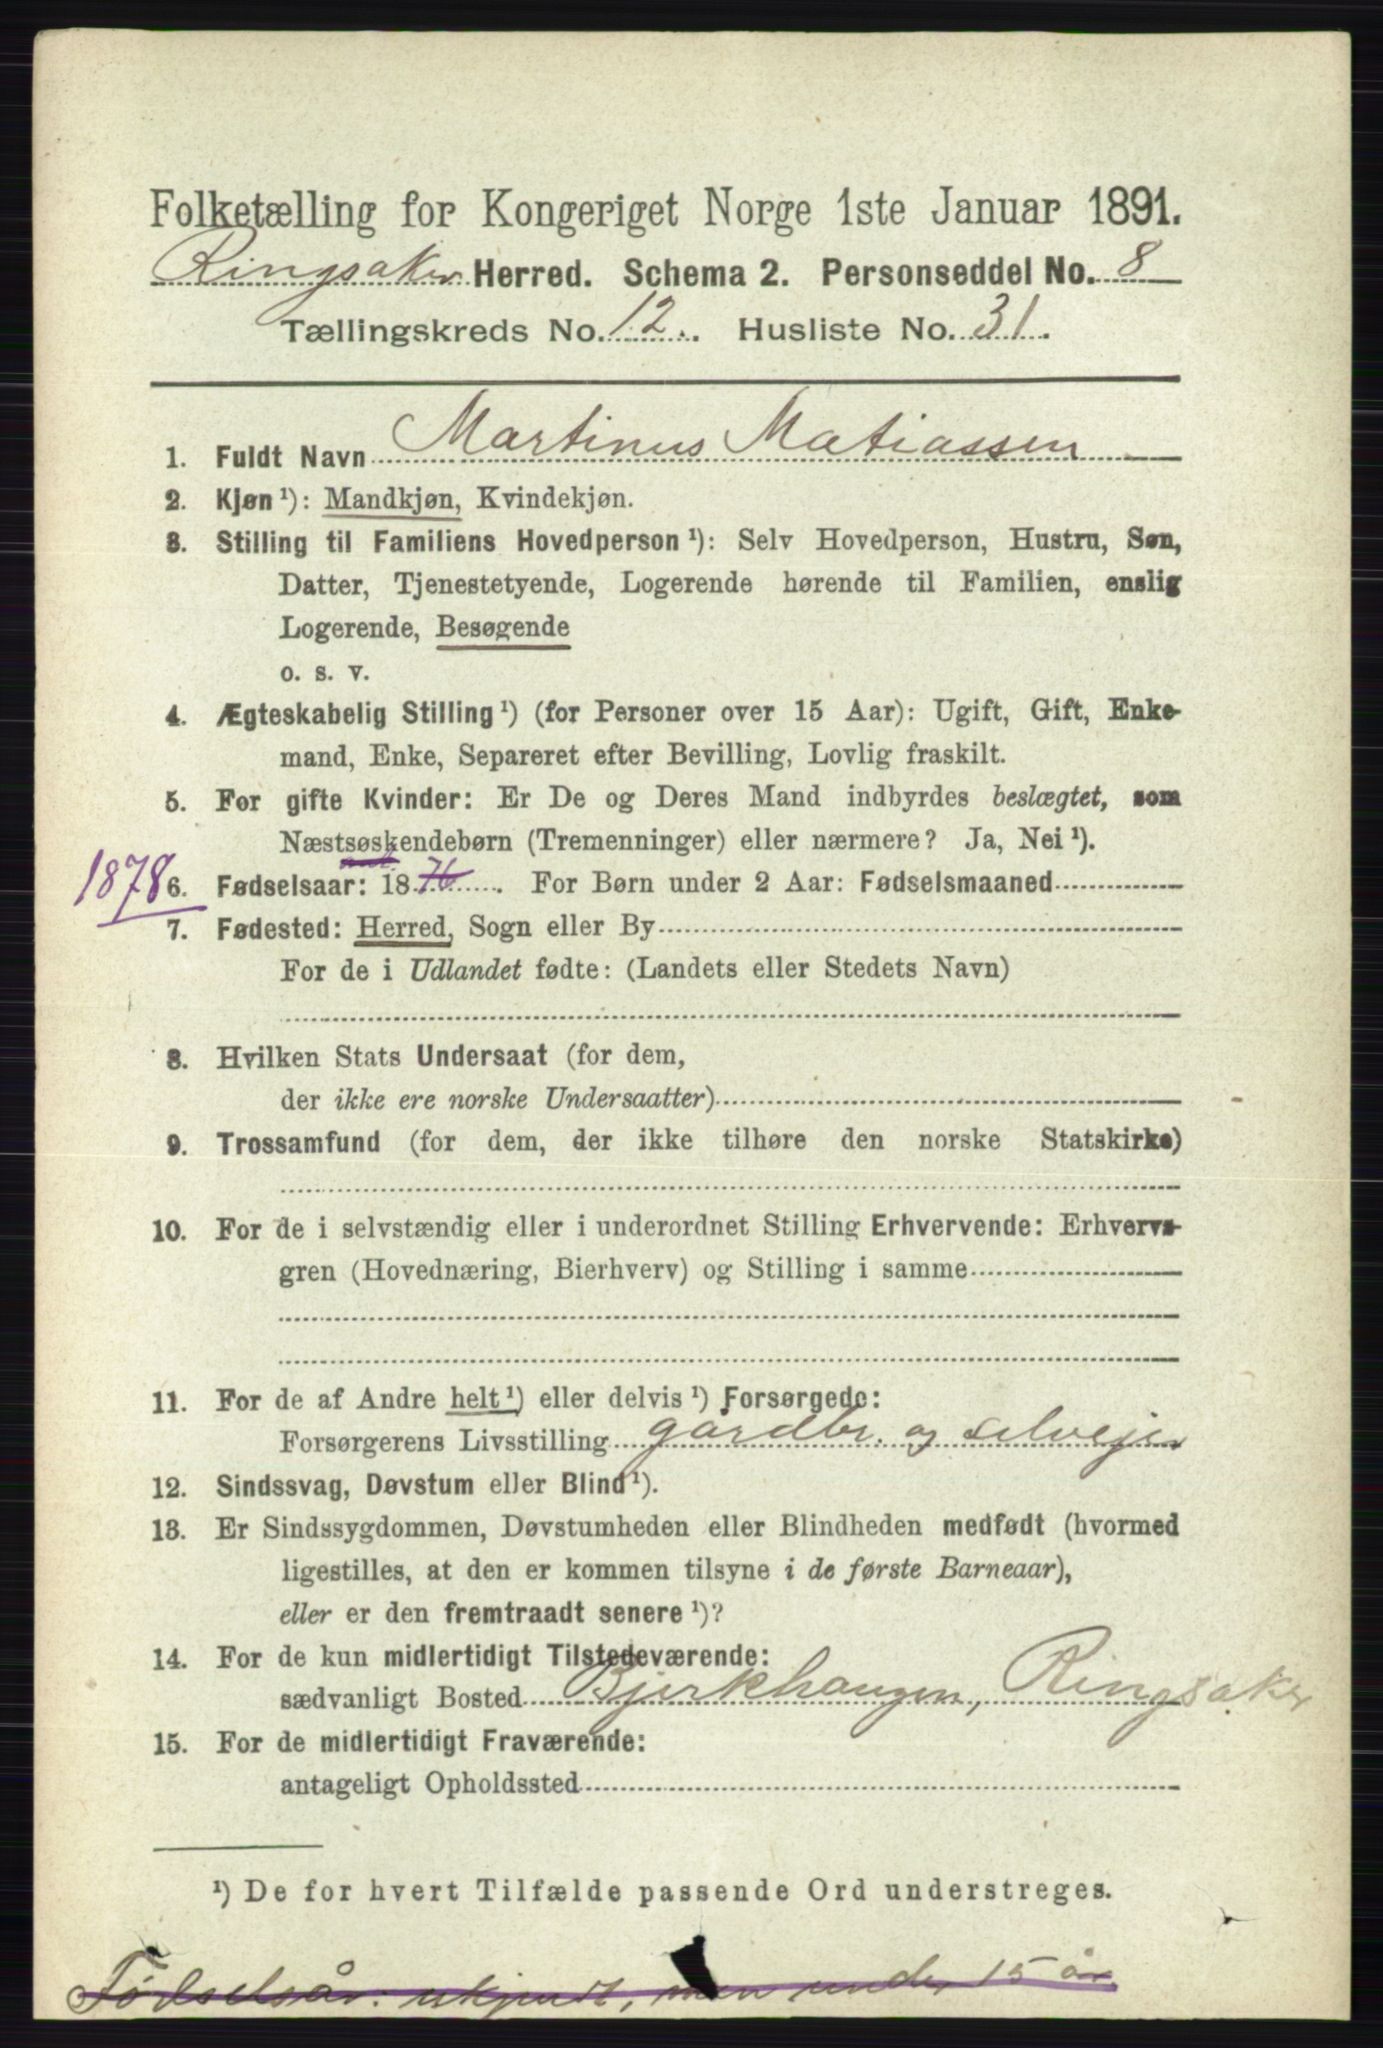 Folketælling for Kongeriget Norge 1ste Januar 1891.
Ringsaker Herred. Schema 2. Personseddel No. 8
Tællingskreds No. 12. Husliste No. 31.
1. Fuldt Navn Martinus Matiassen
2. Kjøn ¹): Mandkjøn, Kvindekjøn.
3. Stilling til Familiens Hovedperson ¹): Selv Hovedperson, Hustru, Søn,
Datter, Tjenestetyende, Logerende hørende til Familien, enslig
Logerende, Besøgende
o. s. v.
4. Ægteskabelig Stilling ¹) (for Personer over 15 Aar): Ugift, Gift, Enke-
mand, Enke, Separeret efter Bevilling, Lovlig fraskilt.
5. For gifte Kvinder: Er De og Deres Mand indbyrdes beslægtet, som
Næstsøskendebørn (Tremenninger) eller nærmere? Ja, Nei ¹).
1878 6. Fødselsaar: 1876. For Børn under 2 Aar: Fødselsmaaned
7. Fødested: Herred, Sogn eller By
For de i Udlandet fødte: (Landets eller Stedets Navn)
8. Hvilken Stats Undersaat (for dem,
der ikke ere norske Undersaatter)
9. Trossamfund (for dem, der ikke tilhøre den norske Statskirke)
10. For de i selvstændig eller i underordnet Stilling Erhvervende: Erhvervs-
gren (Hovednæring, Bierhverv) og Stilling i samme
11. For de af Andre helt ¹) eller delvis ¹) Forsørgede:
Forsørgerens Livsstilling gårdbr. og selvejer
12. Sindssvag, Døvstum eller Blind ¹).
13. Er Sindssygdommen, Døvstumheden eller Blindheden medfødt (hvormed
ligestilles, at den er kommen tilsyne i de første Barneaar),
eller er den fremtraadt senere ¹)?
14. For de kun midlertidigt Tilstedeværende:
sædvanligt Bosted Bjerkhaugen, Ringsaker
15. For de midlertidigt Fraværende:
antageligt Opholdssted
¹) De for hvert Tilfælde passende Ord understreges.
Fødselsår: ukjendt, men under 15 år.